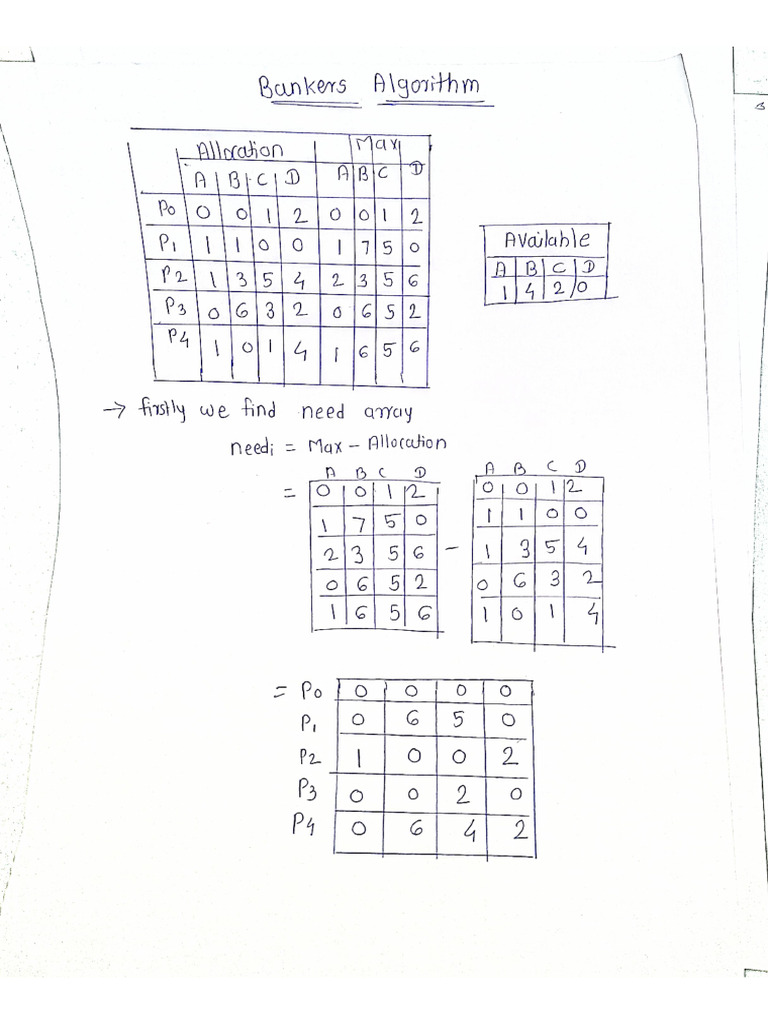 Bankers Algorithm
Allocation Max
A B C D A B C D
P0 0 0 1 2 0 0 1 2
P1 1 1 0 0 1 7 5 0
P2 1 3 5 4 2 3 5 6
P3 0 6 3 2 0 6 5 2
P4 1 0 1 4 1 6 5 6
Available
A B C D
1 4 2 0
→ firstly we find need array
needi = Max - Allocation
A B C D
= 0 0 1 2
1 7 5 0
2 3 5 6
0 6 5 2
1 6 5 6
-
A B C D
0 0 1 2
1 1 0 0
1 3 5 4
0 6 3 2
1 0 1 4
= P0 0 0 0 0
P1 0 6 5 0
P2 1 0 0 2
P3 0 0 2 0
P4 0 6 4 2